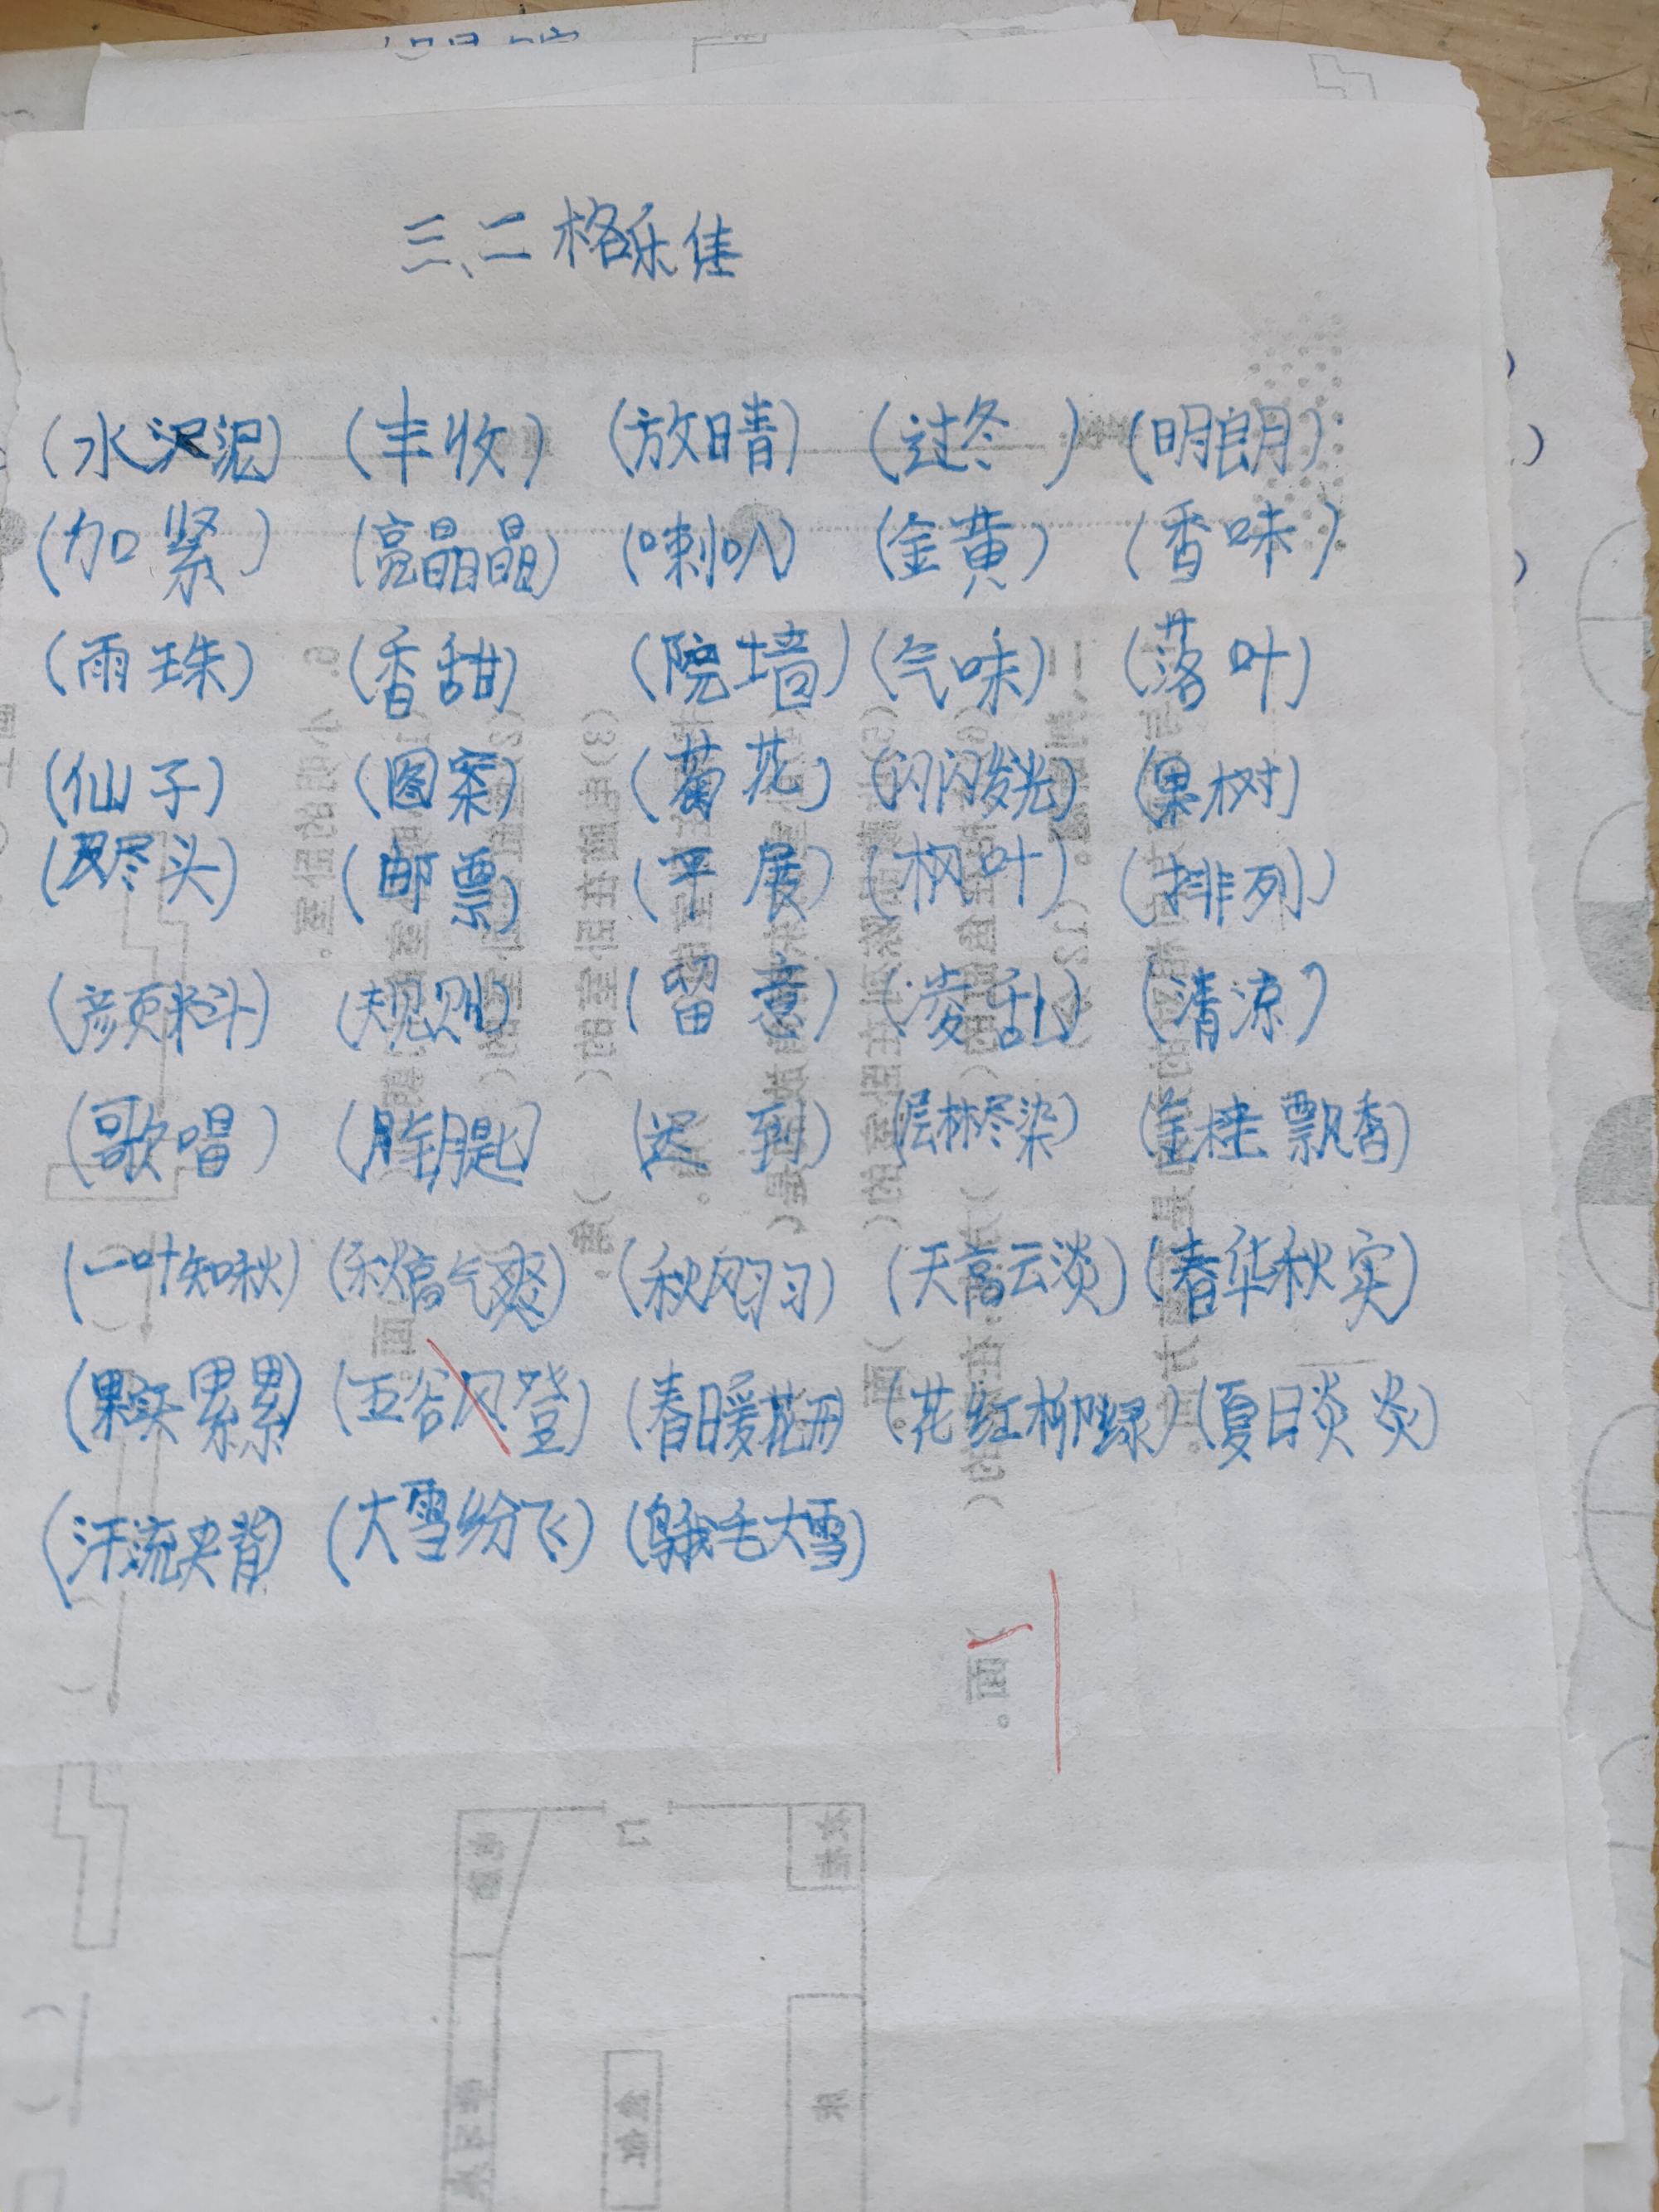 三、二 格乐佳
(水泥) (丰收) (放晴) (过冬) (明朗)
(加紧) (亮晶晶) (喇叭) (金黄) (香味)
(雨珠) (香甜) (院墙) (气味) (落叶)
(仙子) (图案) (菊花) (闪闪发光) (果树)
(尽头) (邮票) (平展) (枫叶) (排列)
(颜料) (规则) (留意) (凌乱) (清凉)
(歌唱) (迟到) (层林尽染) (金桂飘香)
(一叶知秋) (秋高气爽) (秋风习习) (天高云淡) (春华秋实)
(果实累累) (五谷风登) (春暖花开) (花红柳绿) (夏日炎炎)
(汗流夹背) (大雪纷飞) (鹅毛大雪)